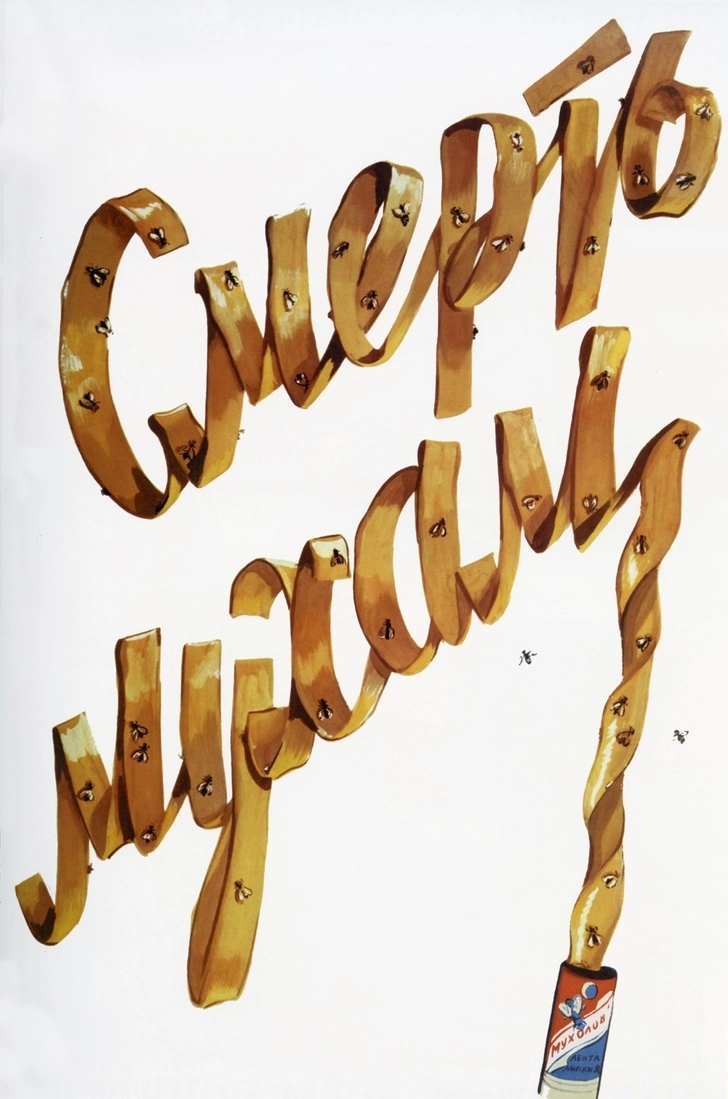 Смерть
мухам
МУХОЛОВ
ЛЕНТА
ЛИПКАЯ